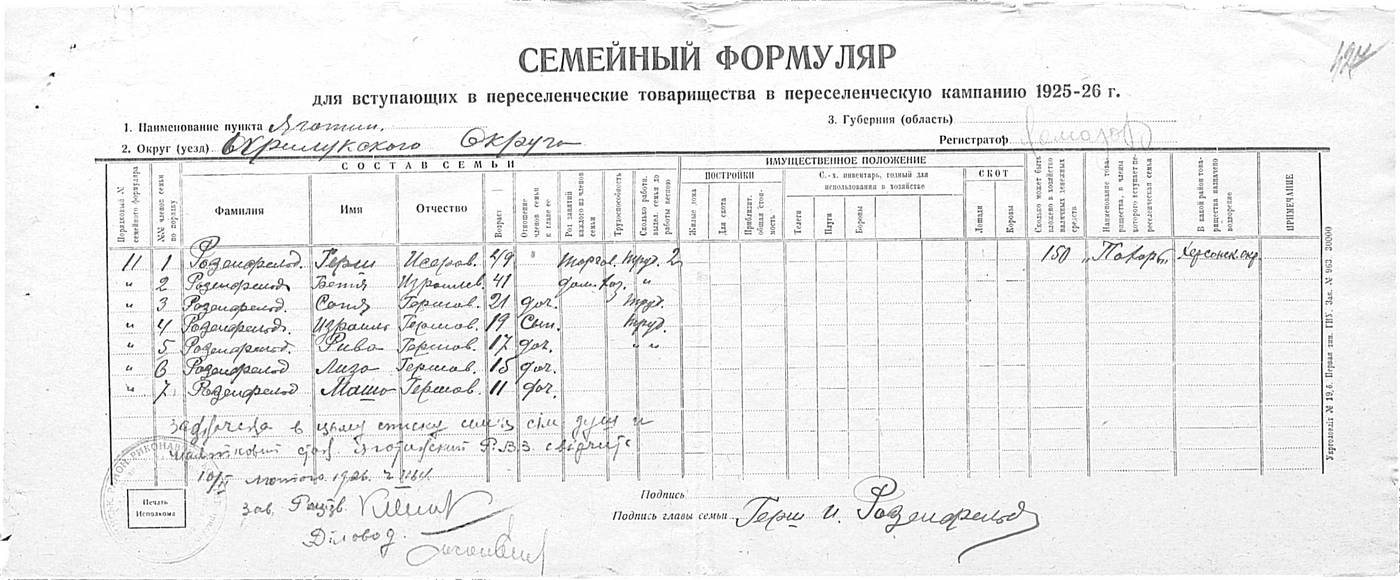 424
СЕМЕЙНЫЙ ФОРМУЛЯР
для вступающих в переселенческие товарищества в переселенческую кампанию 1925-26 г.
1. Наименование пункта Яготин.
3. Губерния (область)
2. Округ (уезд) Прилукского Округа
Регистратор
СОСТАВ СЕМЬИ
ИМУЩЕСТВЕННОЕ ПОЛОЖЕНИЕ
ПОСТРОЙКИ
С.-х. инвентарь, годный для использования в хозяйстве
СКОТ
Порядковый № семейного формуляра
№№ членов семьи по порядку
Фамилия
Имя
Отчество
Возраст
Отношение членов семьи к главе ее
Род занятий каждого из членов семьи
Трудоспособность
Сколько работн. выдел. семья до работы весною
Жилые дома
Для скота
Приблизит. общая стоимость
Телеги
Плуги
Бороны
Лошади
Коровы
Сколько может быть вложено в хозяйство наличных денежных средств
Наименование товарищества, в члены которого вступает переселенческая семья
В какой район товарищества назначено водворение
ПРИМЕЧАНИЕ
11 1 Розенфельд. Герш Исеров. 49 " торгов. труд. 2 150 „Пахарь" Херсонск. окр.
" 2 Розенфельд. Бетя Израилев. 41 дом. хоз. "
" 3 Розенфельд. Соня Гершов. 21 доч. труд.
" 4 Розенфельд. Израиль Гершов. 19 Сын. труд.
" 5 Розенфельд. Рива Гершов. 17 доч. " "
" 6 Розенфельд Лиза Гершов. 15 доч.
" 7. Розенфельд Маша Гершов. 11 доч.
в цьому списку сім душ и
стан. Яготинский Р.В.З. свідчить
лютого 1926
Зав.
Діловод.
Печать Исполкома
Подпись
Подпись главы семьи Герш И. Розенфельд
Укрголовліт № 19, б. Первая тип. ГИУ. Зак. № 963. 30000